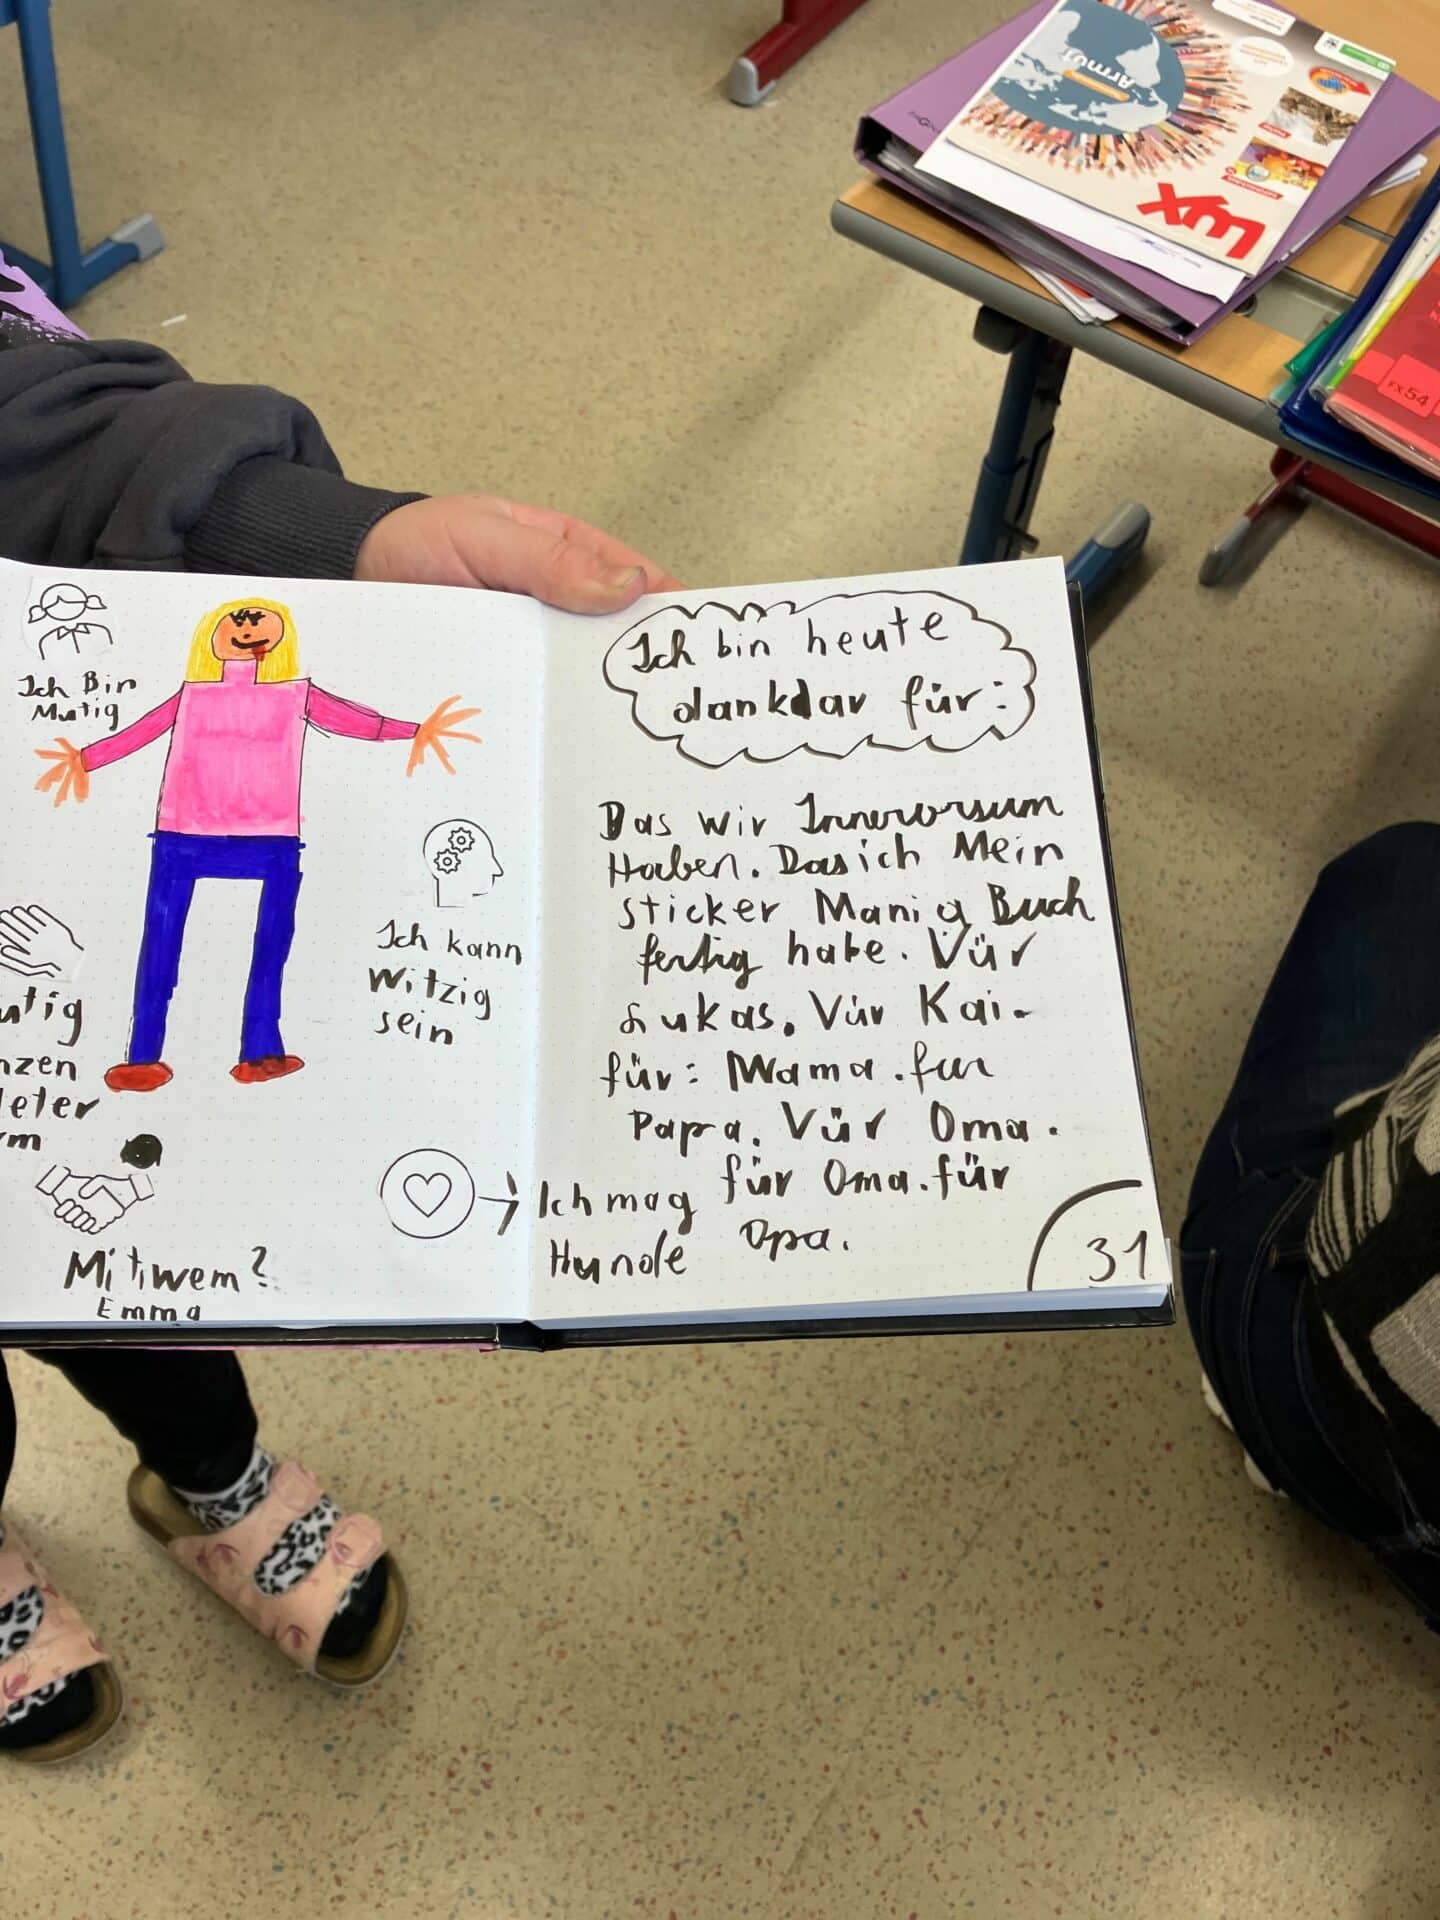 Ich Bin
Mutig
Ich kann
Witzig
sein
utig
nzen
leter
rm
Mitwem?
Emma
Ich bin heute
dankbar für:
Das wir
Haben. Das ich Mein
sticker Buch
fertig habe. Vür
Lukas. Vür Kai.
für: Mama. für
Papa. Vür Oma.
für Oma. für
Opa.
Ich mag
Hunde
31
Armut
Lux
FX54